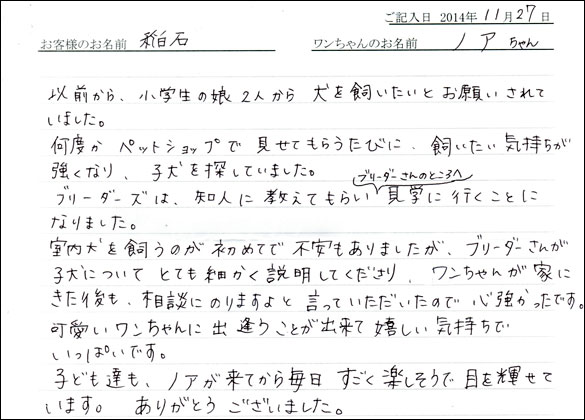 ご記入日 2014年11月27日
お客様のお名前 稲石 ワンちゃんのお名前 ノア ちゃん
以前から、小学生の娘2人から 犬を飼いたいとお願いされて
いました。
何度か ペットショップで 見せてもらうたびに、飼いたい気持ちが
強くなり、子犬を探していました。
ブリーダーさんのところへ
ブリーダーズは、知人に教えてもらい 見学に行くことに
なりました。
室内犬を飼うのが初めてで不安もありましたが、ブリーダーさんが
子犬について とても細かく説明してくださり、ワンちゃんが家に
きた後も、相談にのりますよと言っていただいたので心強かったです。
可愛いワンちゃんに出逢うことが出来て嬉しい気持ちで
いっぱいです。
子ども達も、ノアが来てから毎日 すごく楽しそうで目を輝せて
います。 ありがとうございました。